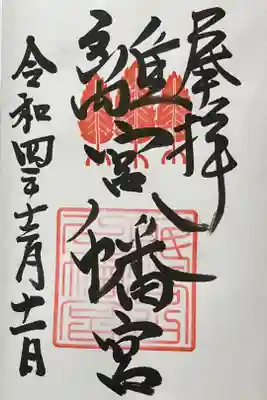 奉拝
離宮八幡宮
令和四年十二月十一日